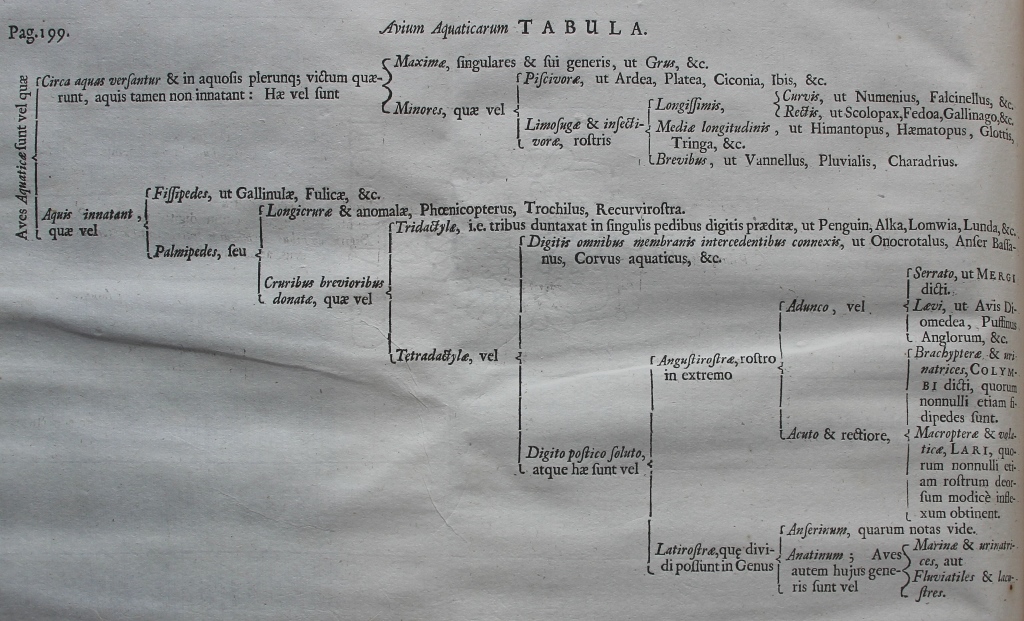 Pag.199.
Avium Aquaticarum TABULA.
Aves Aquaticæ sunt vel quæ
Circa aquas versantur & in aquosis plerunq; victum quæ-
runt, aquis tamen non innatant: Hæ vel sunt
Maximæ, singulares & sui generis, ut Grus, &c.
Minores, quæ vel
Piscivoræ, ut Ardea, Platea, Ciconia, Ibis, &c.
Limosugæ & insecti-
voræ, rostris
Longissimis,
Curvis, ut Numenius, Falcinellus, &c.
Rectis, ut Scolopax, Fedoa, Gallinago, &c.
Mediæ longitudinis, ut Himantopus, Hæmatopus, Glottis,
Tringa, &c.
Brevibus, ut Vannellus, Pluvialis, Charadrius.
Aquis innatant,
quæ vel
Fissipedes, ut Gallinulæ, Fulicæ, &c.
Palmipedes, seu
Longicruræ & anomalæ, Phœnicopterus, Trochilus, Recurvirostra.
Cruribus brevioribus
donatæ, quæ vel
Tridactylæ, i.e. tribus duntaxat in singulis pedibus digitis præditæ, ut Penguin, Alka, Lomwia, Lunda, &c.
Tetradactylæ, vel
Digitis omnibus membranis intercedentibus connexis, ut Onocrotalus, Anser Bassa-
nus, Corvus aquaticus, &c.
Digito postico soluto,
atque hæ sunt vel
Angustirostræ, rostro
in extremo
Adunco, vel
Serrato, ut MERGI
dicti.
Lævi, ut Avis Di-
omedea, Puffinus
Anglorum, &c.
Acuto & rectiore,
Brachypteræ & uri-
natrices, COLYM-
BI dicti, quorum
nonnulli etiam fi-
dipedes sunt.
Macropteræ & vola-
ticæ, LARI, quo-
rum nonnulli eti-
am rostrum deor-
sum modicè infle-
xum obtinent.
Latirostræ, quę divi-
di possunt in Genus
Anserinum, quarum notas vide.
Anatinum; Aves
autem hujus gene-
ris sunt vel
Marinæ & urinatri-
ces, aut
Fluviatiles & lacu-
stres.